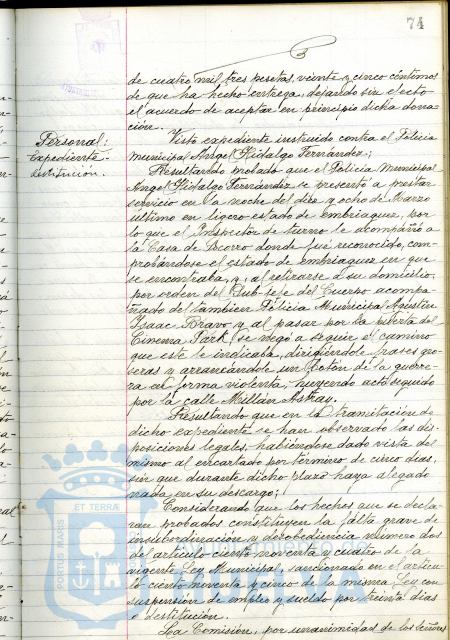 74
de cuatro mil tres pesetas, veinte y cinco céntimos
de que ha hecho entrega, dejando sin efecto
el acuerdo de aceptar en principio dicha dona-
ción.
Personal:
Expediente.
destitución.
Visto expediente instruido contra el Policia
municipal Angel Hidalgo Fernández;
Resultando probado que el Policia Municipal
Angel Hidalgo Fernández se presentó a prestar
servicio en la noche del diez y ocho de Marzo
último en ligero estado de embriaguez, por
lo que el Inspector de turno le acompañó a
la Casa de Socorro donde fué reconocido, com-
probándose el estado de embriaguez en que
se encontraba, y al retirarse a su domicilio,
por orden del Sub-jefe del Cuerpo acompa-
ñado del tambien Policia Municipal Agustín
Isaac Bravo y al pasar por la puerta del
Cinema Park, se negó a seguir el camino
que este le indicaba, dirigiéndole frases gro-
seras y arrancándole un botón de la guerre-
ra en forma violenta, huyendo acto seguido
por la calle Millán Astray.
Resultando que en la tramitación de
dicho expediente se han observado las dis-
posiciones legales, habiéndose dado vista del
mismo al encartado por término de cinco dias,
sin que durante dicho plazo haya alegado
nada en su descargo;
Considerando que los hechos que se decla-
ran probados constituyen la falta grave de
insubordinación y desobediencia número dos
del articulo ciento noventa y cuatro de la
vigente Ley Municipal, sancionado en el articu-
lo ciento noventa y cinco de la misma Ley con
suspensión de empleo y sueldo por treinta dias
o destitución.
La Comisión, por unanimidad de los señores
ET TERRÆ
PORTUS MARIS